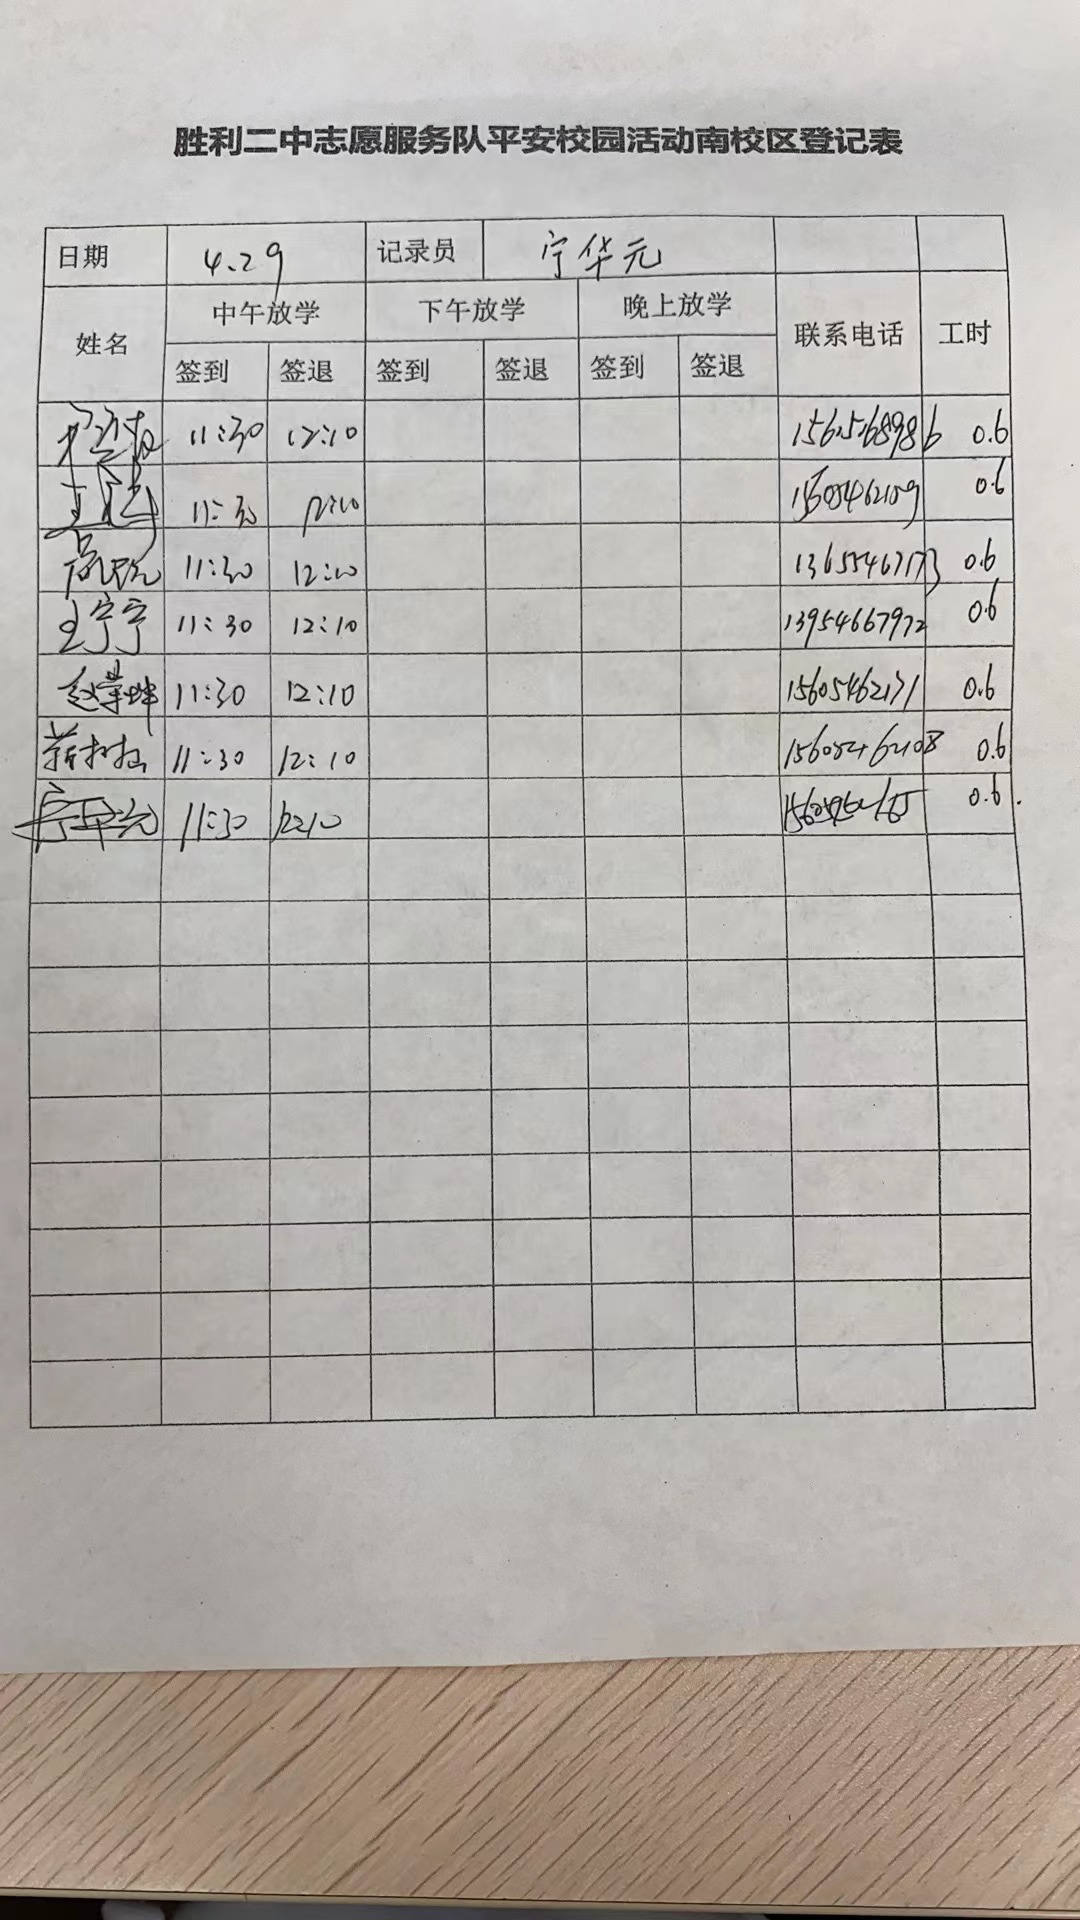 胜利二中志愿服务队平安校园活动南校区登记表
日期 4.29 记录员 宁华元
姓名 中午放学 下午放学 晚上放学 联系电话 工时
签到 签退 签到 签退 签到 签退
11:30 12:10 0.6
11:30 12:10 0.6
11:30 12:10 0.6
王宁宁 11:30 12:10 13954667972 0.6
赵荣坤 11:30 12:10 15605462171 0.6
11:30 12:10 0.6
宁华元 11:30 12:10 0.6